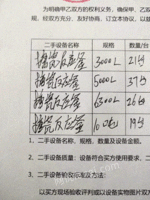 为明确甲乙双方的权利义务，确保甲、乙
规，经双方充分、友好协商，订立本协议，以
二手设备名称 规格 数量/台
搪瓷反应釜 3000L 21台
搪瓷反应釜 5000L 37台
搪瓷反应釜 6300L 26台
搪瓷反应釜 19台
一、二手设备名称、规格、数量及设备金额。
二、二手设备质量：设备符合买方使用要求，
三、二手设备验收标准及方法：
以买方现场验收评判或以设备实物图片双方